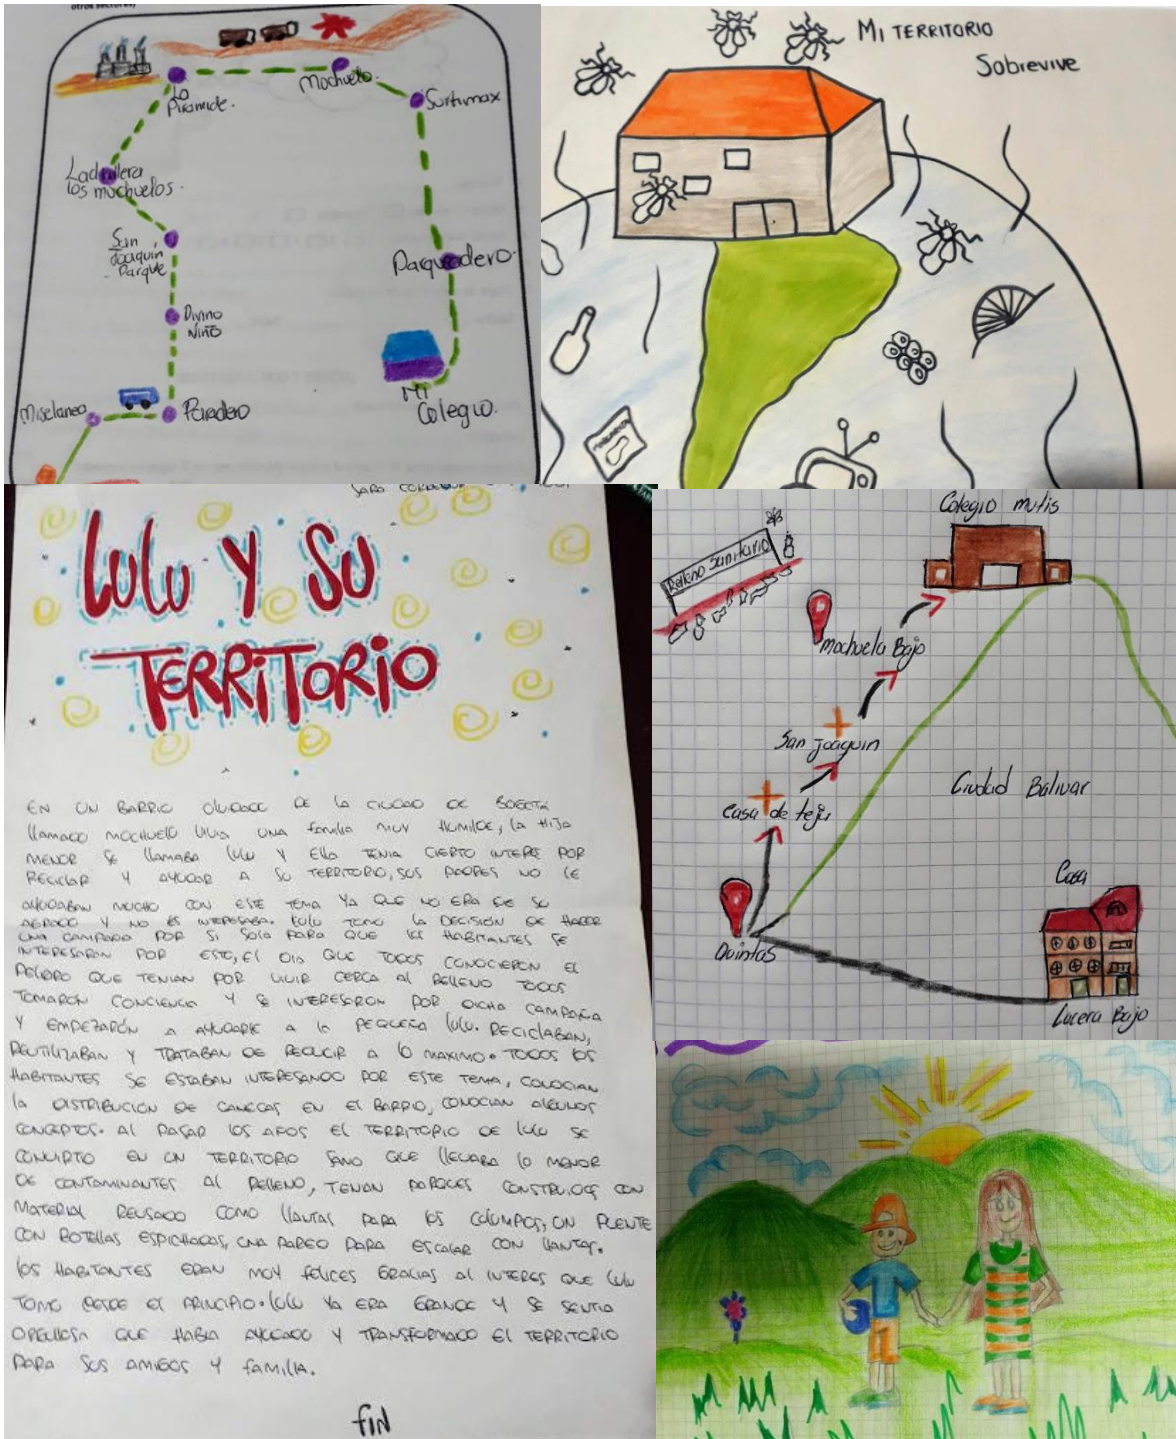 otros sectores)
La
Piramide.
Mochuelo.
Surtimax
Ladrillera
los mochuelos.
San
Joaquin
Parque
Parqueadero.
Divino
Niño
Miselanea
Paradero
Mi
Colegio.
Mi TERRITORIO
Sobrevive
Sara
LULU Y SU
TERRITORIO
EN UN BARRIO OLVIDADO DE LA CIUDAD DE BOGOTA
llamado MOCHUELO VIVIA UNA familia MUY HUMILDE, LA HIJA
MENOR SE llAMABA lulu Y ElLA TENIA CIERTO INTERES POR
RECICLAR Y AYUDAR A SU TERRITORIO, SUS PADRES NO LE
AYUDABAN MUCHO CON ESTE TEMA YA QUE NO ERA DE SU
AGRADO Y NO ES INTERESABA. lulu TOMO LA DECISIÓN DE HACER
UNA CAMPAÑA POR SI SOLA PARA QUE los HABITANTES SE
INTERESARAN POR ESTO, El DIA QUE TODOS CONOCIERON El
PELIGRO QUE TENIAN POR VIVIR CERCA Al RELLENO TODOS
TOMARON CONCIENCIA Y SE INTERESARON POR DICHA CAMPAÑA
Y EMPEZARÓN A AYUDARLE A la PEQUEÑA lulu. RECICLABAN,
REUTILIZABAN Y TRATABAN DE REDUCIR A lO MAXIMO. TODOS los
HABITANTES SE ESTABAN INTERESANDO POR ESTE TEMA, CONOCIAN
la DISTRIBUCIÓN DE CANECAS EN El BARRIO, CONOCIAN ALGUNOS
CONCEPTOS. Al PASAR lOS AÑOS El TERRITORIO DE lulu SE
CONVIRTIO EN UN TERRITORIO SANO QUE llEVABA lO MENOR
DE CONTAMINANTES Al RELLENO, TENIAN PARQUES CONSTRUIDOS CON
MATERIAL REUSADO COMO llANTAS PARA lOS COLUMPIOS, UN PUENTE
CON BOTELLAS ESPICHADAS, UNA PARED PARA ESCALAR CON llANTAS.
los HABITANTES ERAN MUY FELICES GRACIAS Al INTERES QUE lulu
TOMO DESDE El PRINCIPIO. lulu YA ERA GRANDE Y SE SENTIA
ORGULLOSA QUE HABIA AYUDADO Y TRANSFORMADO El TERRITORIO
PARA SUS AMIGOS Y familia.
fiN
Colegio mutis
Relleno Sanitario
Mochuelo Bajo
San Joaquin
Casa de teja
Ciudad Bolivar
Quintas
Casa
Lucero Bajo